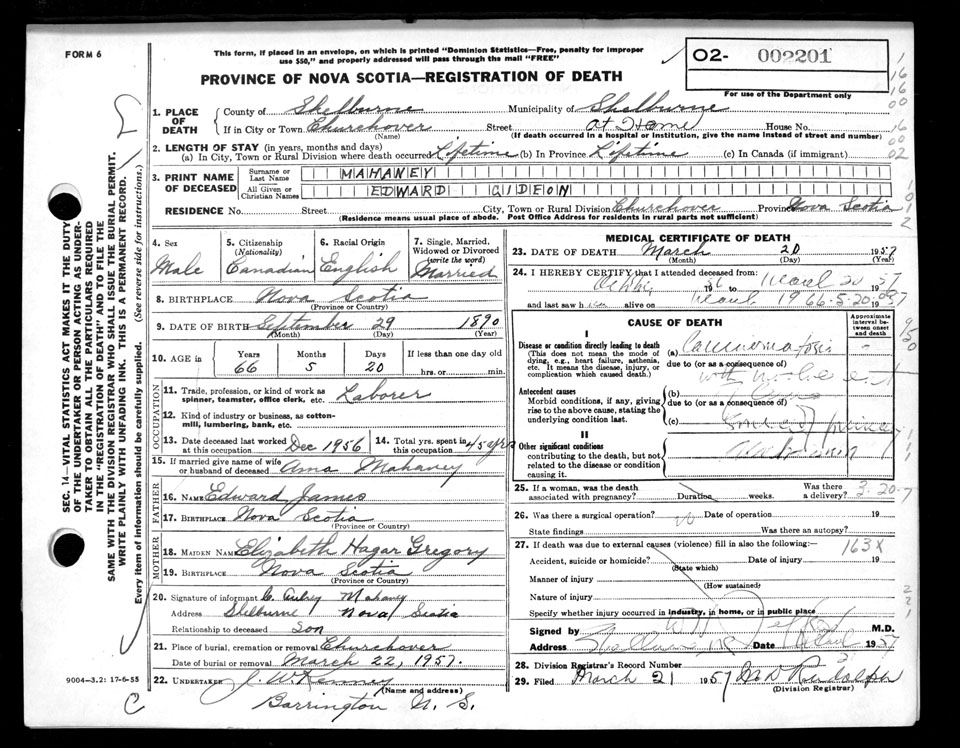 FORM 6
This form, if placed in an envelope, on which is printed "Dominion Statistics—Free, penalty for improper
use $50," and properly addressed will pass through the mail "FREE"
O2- 002201
For use of the Department only
PROVINCE OF NOVA SCOTIA—REGISTRATION OF DEATH
1. PLACE OF DEATH
County of Shelburne Municipality of Shelburne
If in City or Town Churchover Street At Home House No.
(Name) (If death occurred in a hospital or institution, give the name instead of street and number)
2. LENGTH OF STAY (in years, months and days)
(a) In City, Town or Rural Division where death occurred Lifetime (b) In Province Lifetime (c) In Canada (if immigrant)
3. PRINT NAME OF DECEASED
Surname or Last Name MAHANEY
All Given or Christian Names EDWARD GIDEON
RESIDENCE No. Street City, Town or Rural Division Churchover Province Nova Scotia
(Residence means usual place of abode. Post Office Address for residents in rural parts not sufficient)
4. Sex Male
5. Citizenship (Nationality) Canadian
6. Racial Origin English
7. Single, Married, Widowed or Divorced (write the word) Married
8. BIRTHPLACE Nova Scotia
(Province or Country)
9. DATE OF BIRTH September 29 1890
(Month) (Day) (Year)
10. AGE in Years Months Days If less than one day old
66 5 20 hrs. or min.
OCCUPATION
11. Trade, profession, or kind of work as spinner, teamster, office clerk, etc. Laborer
12. Kind of industry or business, as cotton-mill, lumbering, bank, etc.
13. Date deceased last worked at this occupation Dec 1956
14. Total yrs. spent in this occupation 45 yrs
15. If married give name of wife or husband of deceased Ama Mahaney
FATHER
16. NAME Edward James
17. BIRTHPLACE Nova Scotia
(Province or Country)
MOTHER
18. MAIDEN NAME Elizabeth Hagar Gregory
19. BIRTHPLACE Nova Scotia
(Province or Country)
20. Signature of informant C. Aubrey Mahaney
Address Shelburne Nova Scotia
Relationship to deceased Son
21. Place of burial, cremation or removal Churchover
Date of burial or removal March 22, 1957.
22. UNDERTAKER J. W Kenney
(Name and address)
Barrington N. S.
9004—3.2: 17-6-55
C
MEDICAL CERTIFICATE OF DEATH
23. DATE OF DEATH March 20 1957
(Month) (Day) (Year)
24. I HEREBY CERTIFY that I attended deceased from:
19 to 20 1957
and last saw him alive on 19
CAUSE OF DEATH
Approximate interval between onset and death
I
Disease or condition directly leading to death
(This does not mean the mode of dying, e.g., heart failure, asthenia, etc. It means the disease, injury, or complication which caused death.)
(a) Carcinomatosis
due to (or as a consequence of)
Antecedent causes
Morbid conditions, if any, giving rise to the above cause, stating the underlying condition last.
(b)
due to (or as a consequence of)
(c)
II
Other significant conditions
contributing to the death, but not related to the disease or condition causing it.
25. If a woman, was the death associated with pregnancy? Duration weeks. Was there a delivery?
26. Was there a surgical operation? Date of operation 19
State findings Was there an autopsy?
27. If death was due to external causes (violence) fill in also the following:—
163X
Accident, suicide or homicide? Date of injury 19
(State which)
Manner of injury
(How sustained)
Nature of injury
Specify whether injury occurred in industry, in home, or in public place
Signed by M.D.
Address Date 1957
28. Division Registrar's Record Number
29. Filed March 21 1957
(Division Registrar)
SEC. 14—VITAL STATISTICS ACT MAKES IT THE DUTY
OF THE UNDERTAKER OR PERSON ACTING AS UNDER-
TAKER TO OBTAIN ALL THE PARTICULARS REQUIRED
IN THE "REGISTRATION OF DEATH" AND TO FILE THE
SAME WITH THE DIVISION REGISTRAR WHO SHALL ISSUE THE BURIAL PERMIT.
WRITE PLAINLY WITH UNFADING INK. THIS IS A PERMANENT RECORD.
Every item of information should be carefully supplied. (See reverse side for instructions.)